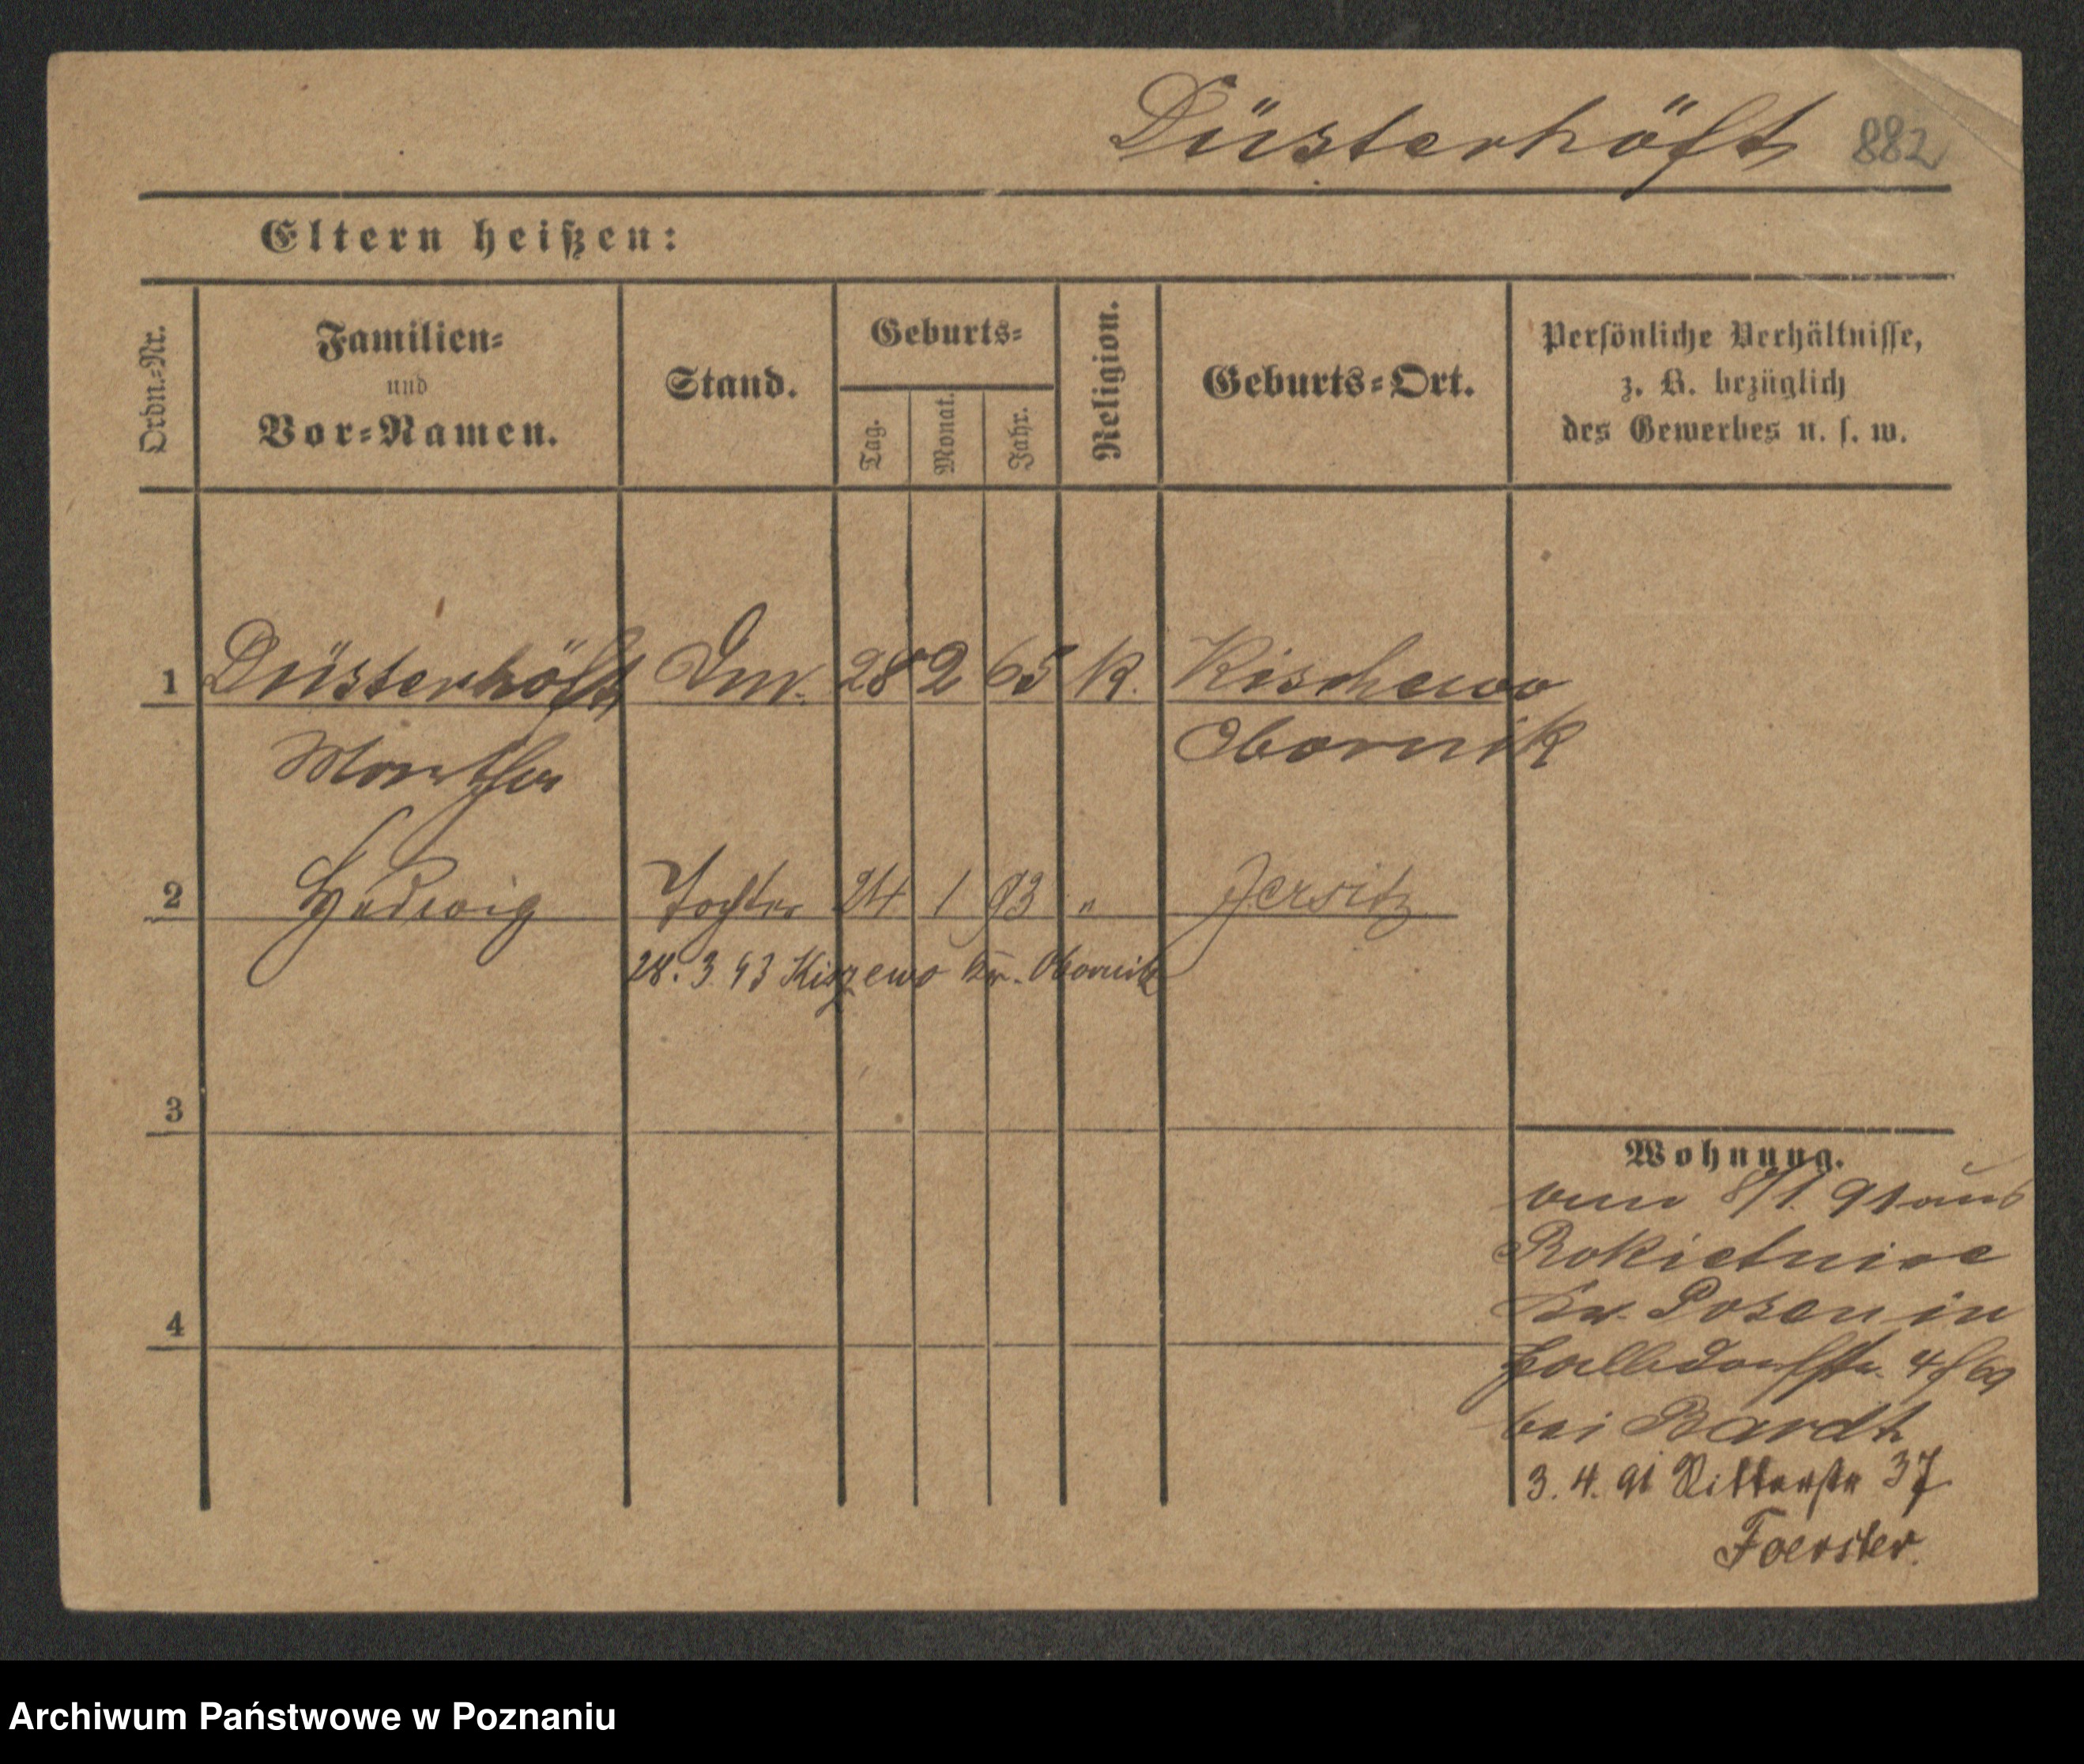 Düsterhöft 882
Eltern heißen:
Ordn.-Nr.
Familien-
und
Vor-Namen.
Stand.
Geburts-
Tag.
Monat.
Jahr.
Religion.
Geburts-Ort.
Persönliche Verhältnisse,
z. B. bezüglich
des Gewerbes u. s. w.
1 Düsterhöft 28 2 65 K. Kischewo
Obornik
2 Hedwig Tochter 24 1 93 " Jersitz
28. 3 93 Kiszewo Kr. Obornik
3
4
Wohnung.
8/1. 91 aus
Rokietnice
Kr. Posen in
bei Bardt
3. 4. 91 Ritterstr 37
Foerster.
Archiwum Państwowe w Poznaniu